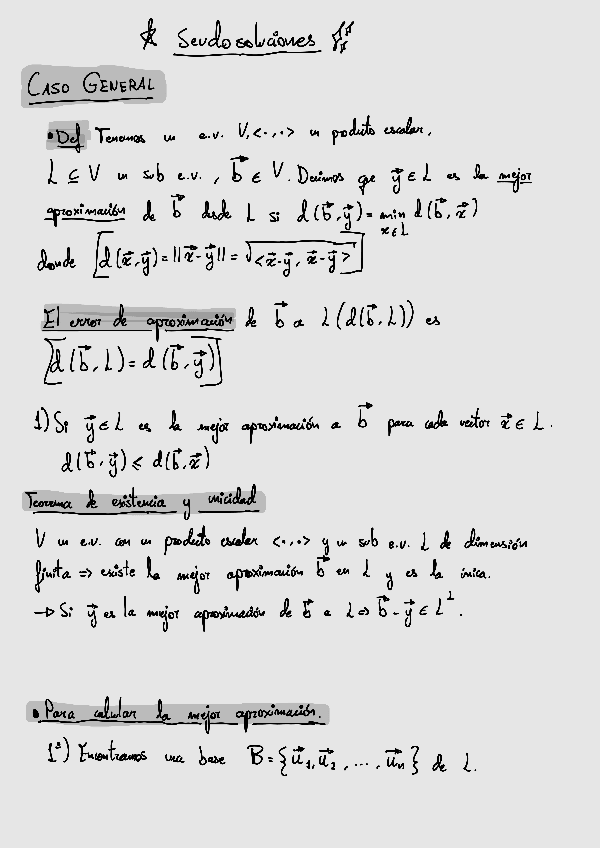 Seudosoluciones
CASO GENERAL
• Def Tenemos un e.v. V, <·,·> un producto escalar,
L ⊆ V un sub e.v., b⃗ ∈ V. Decimos que y⃗ ∈ L es la mejor
aproximación de b⃗ desde L si d(b⃗, y⃗) = min d(b⃗, x⃗)
x∈L
donde d(x⃗, y⃗) = ||x⃗-y⃗|| = √<x⃗-y⃗, x⃗-y⃗>
El error de aproximación de b⃗ a L (d(b⃗, L)) es
d(b⃗, L) = d(b⃗, y⃗)
1) Si y⃗ ∈ L es la mejor aproximación a b⃗ para cada vector x⃗ ∈ L.
d(b⃗, y⃗) ≤ d(b⃗, x⃗)
Teorema de existencia y unicidad
V un e.v. con un producto escalar <·,·> y un sub e.v. L de dimensión
finita => existe la mejor aproximación b⃗ en L y es la única.
→ Si y⃗ es la mejor aproximación de b⃗ a L => b⃗ - y⃗ ∈ L⊥
• Para calcular la mejor aproximación.
1º) Encontramos una base B = {u⃗₁, u⃗₂, ..., u⃗ₙ} de L.